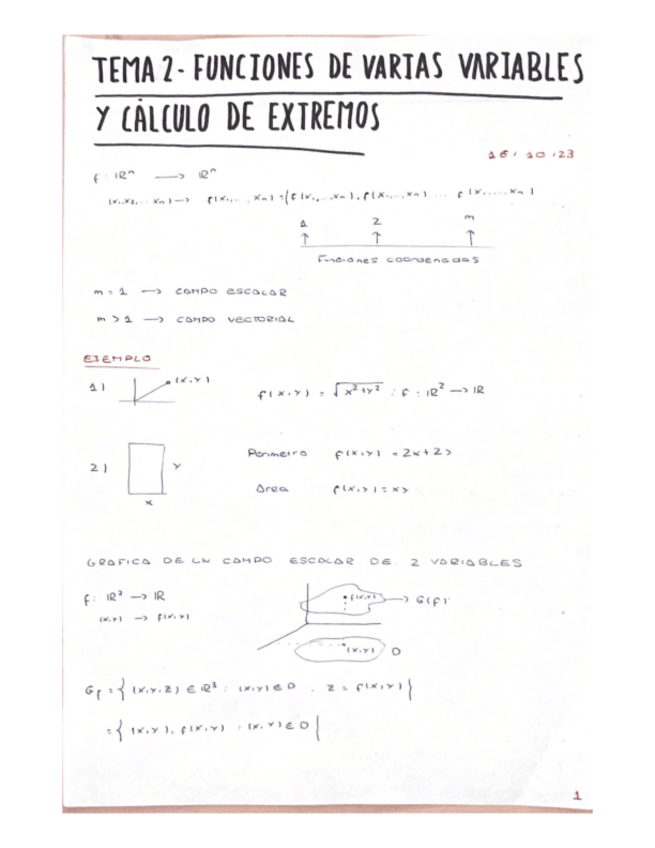 TEMA 2 - FUNCIONES DE VARIAS VARIABLES
Y CÁLCULO DE EXTREMOS
16 / 10 / 23
f : ℝⁿ → ℝⁿ
(x₁, x₂, ... xₙ) → f(x₁, ... xₙ) = (f(x₁, ... xₙ), f(x₁, ... xₙ) ... f(x₁, ... xₙ)
1 2 m
↑ ↑ ↑
Funciones coordenadas
m = 1 → CAMPO ESCALAR
m > 1 → CAMPO VECTORIAL
EJEMPLO
1) (x,y) f(x,y) = √x²+y² : f : ℝ² → ℝ
2) y Perimetro f(x,y) = 2x+2y
x Area f(x,y) = xy
GRAFICA DE UN CAMPO ESCALAR DE 2 VARIABLES
f : ℝ² → ℝ
(x,y) → f(x,y)
f(x,y) → G(f)
(x,y) D
Gf = { (x,y,z) ∈ ℝ³ : (x,y) ∈ D , z = f(x,y) }
= { (x,y), f(x,y) : (x,y) ∈ D }
1